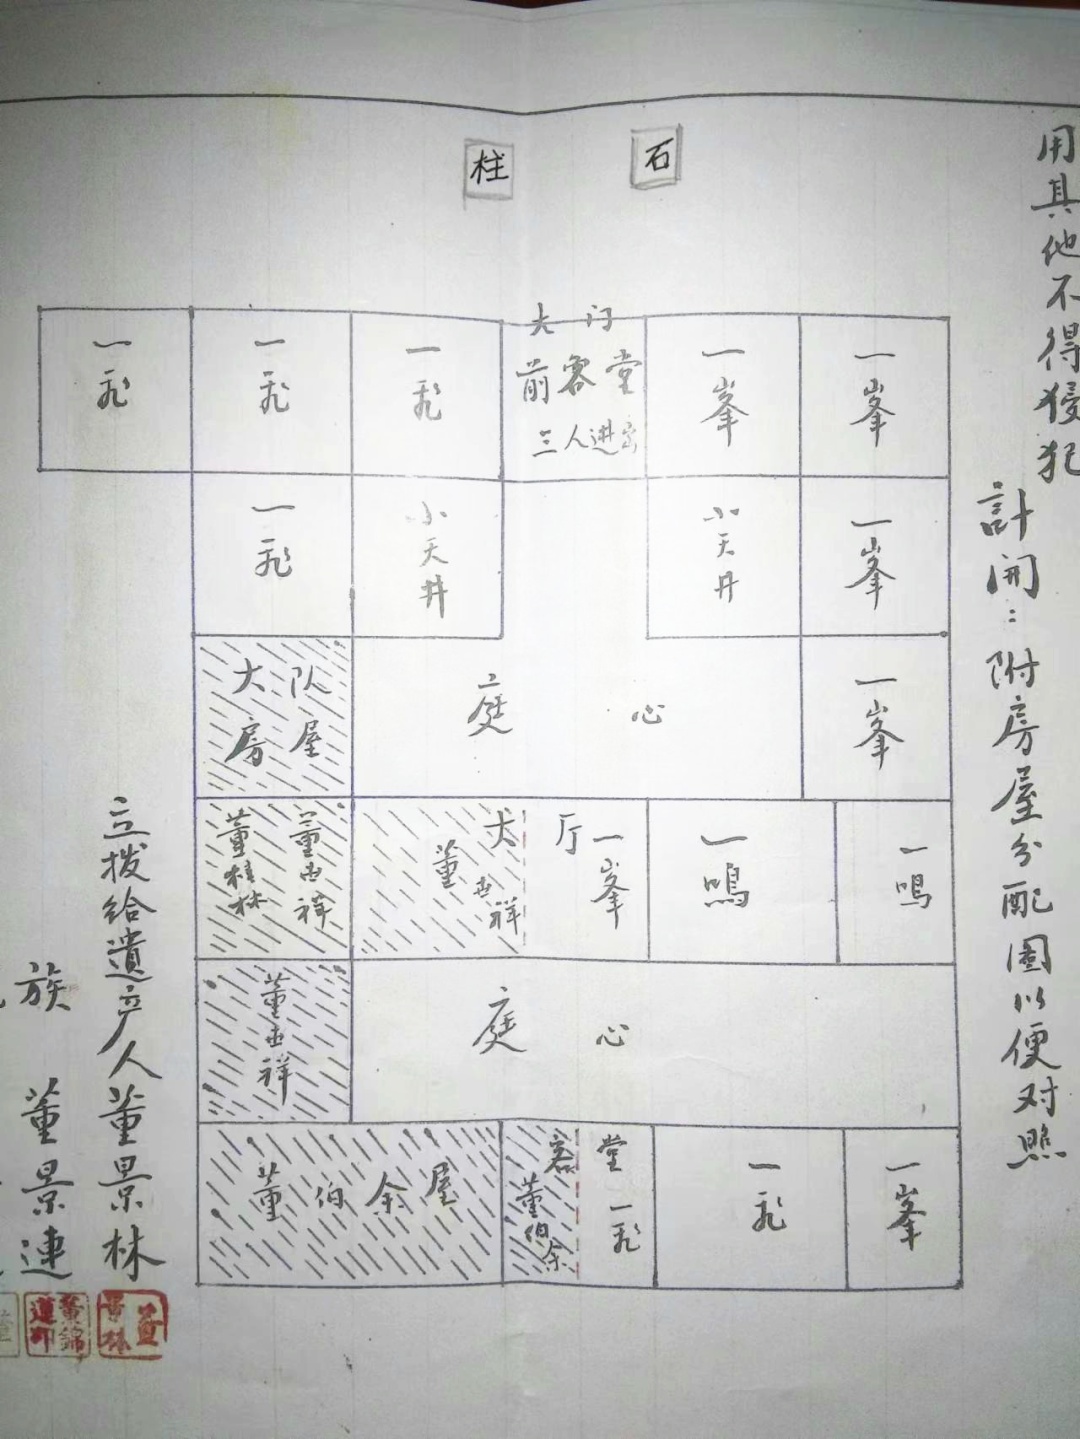 用其他不得侵犯
計開：附房屋分配圖以便对照
柱 石
一飛
一飛
一飛
大门
前客堂
三人进出
一峯
一峯
一飛
小天井
小天井
一峯
大队
房屋
庭心
一峯
董桂林
董世祥
大厅
董世祥
一峯
一鳴
一鳴
董世祥
庭心
董伯余屋
客堂
董伯余
一飛
一飛
一峯
立拨给遺产人董景林
族 董景連